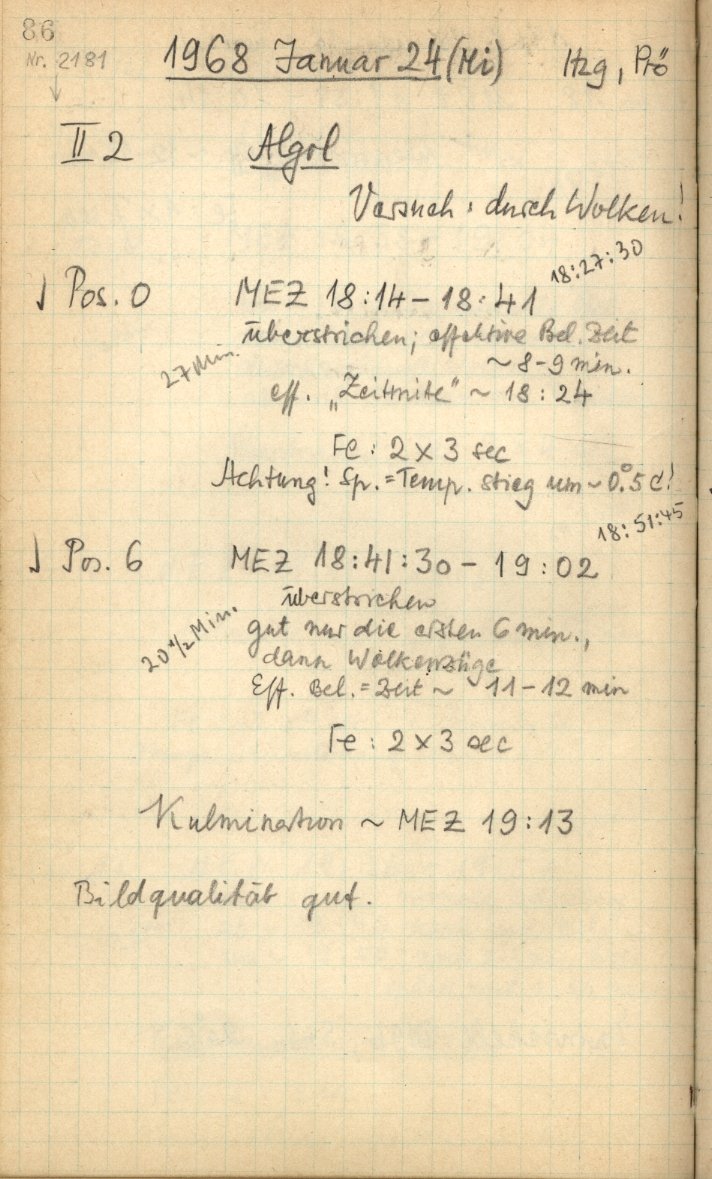 86
Nr. 2181
1968 Januar 24 (Mi) Hzg, Prö
II 2 Algol
Versuch: durch Wolken!
18:27:30
Pos. 0 MEZ 18:14 – 18:41
überstrichen; effektive Bel. Zeit
~ 8-9 min.
27 Min.
eff. „Zeitmitte“ ~ 18:24
Fe: 2 x 3 sec
Achtung! Sp.=Temp. stieg um ~ 0°.5 C!
18:51:45
Pos. 6 MEZ 18:41:30 – 19:02
überstrichen
20 1/2 Min.
gut nur die ersten 6 min.,
dann Wolkenzüge
Eff. Bel.=Zeit ~ 11-12 min
Fe: 2 x 3 sec
Kulmination ~ MEZ 19:13
Bildqualität gut.